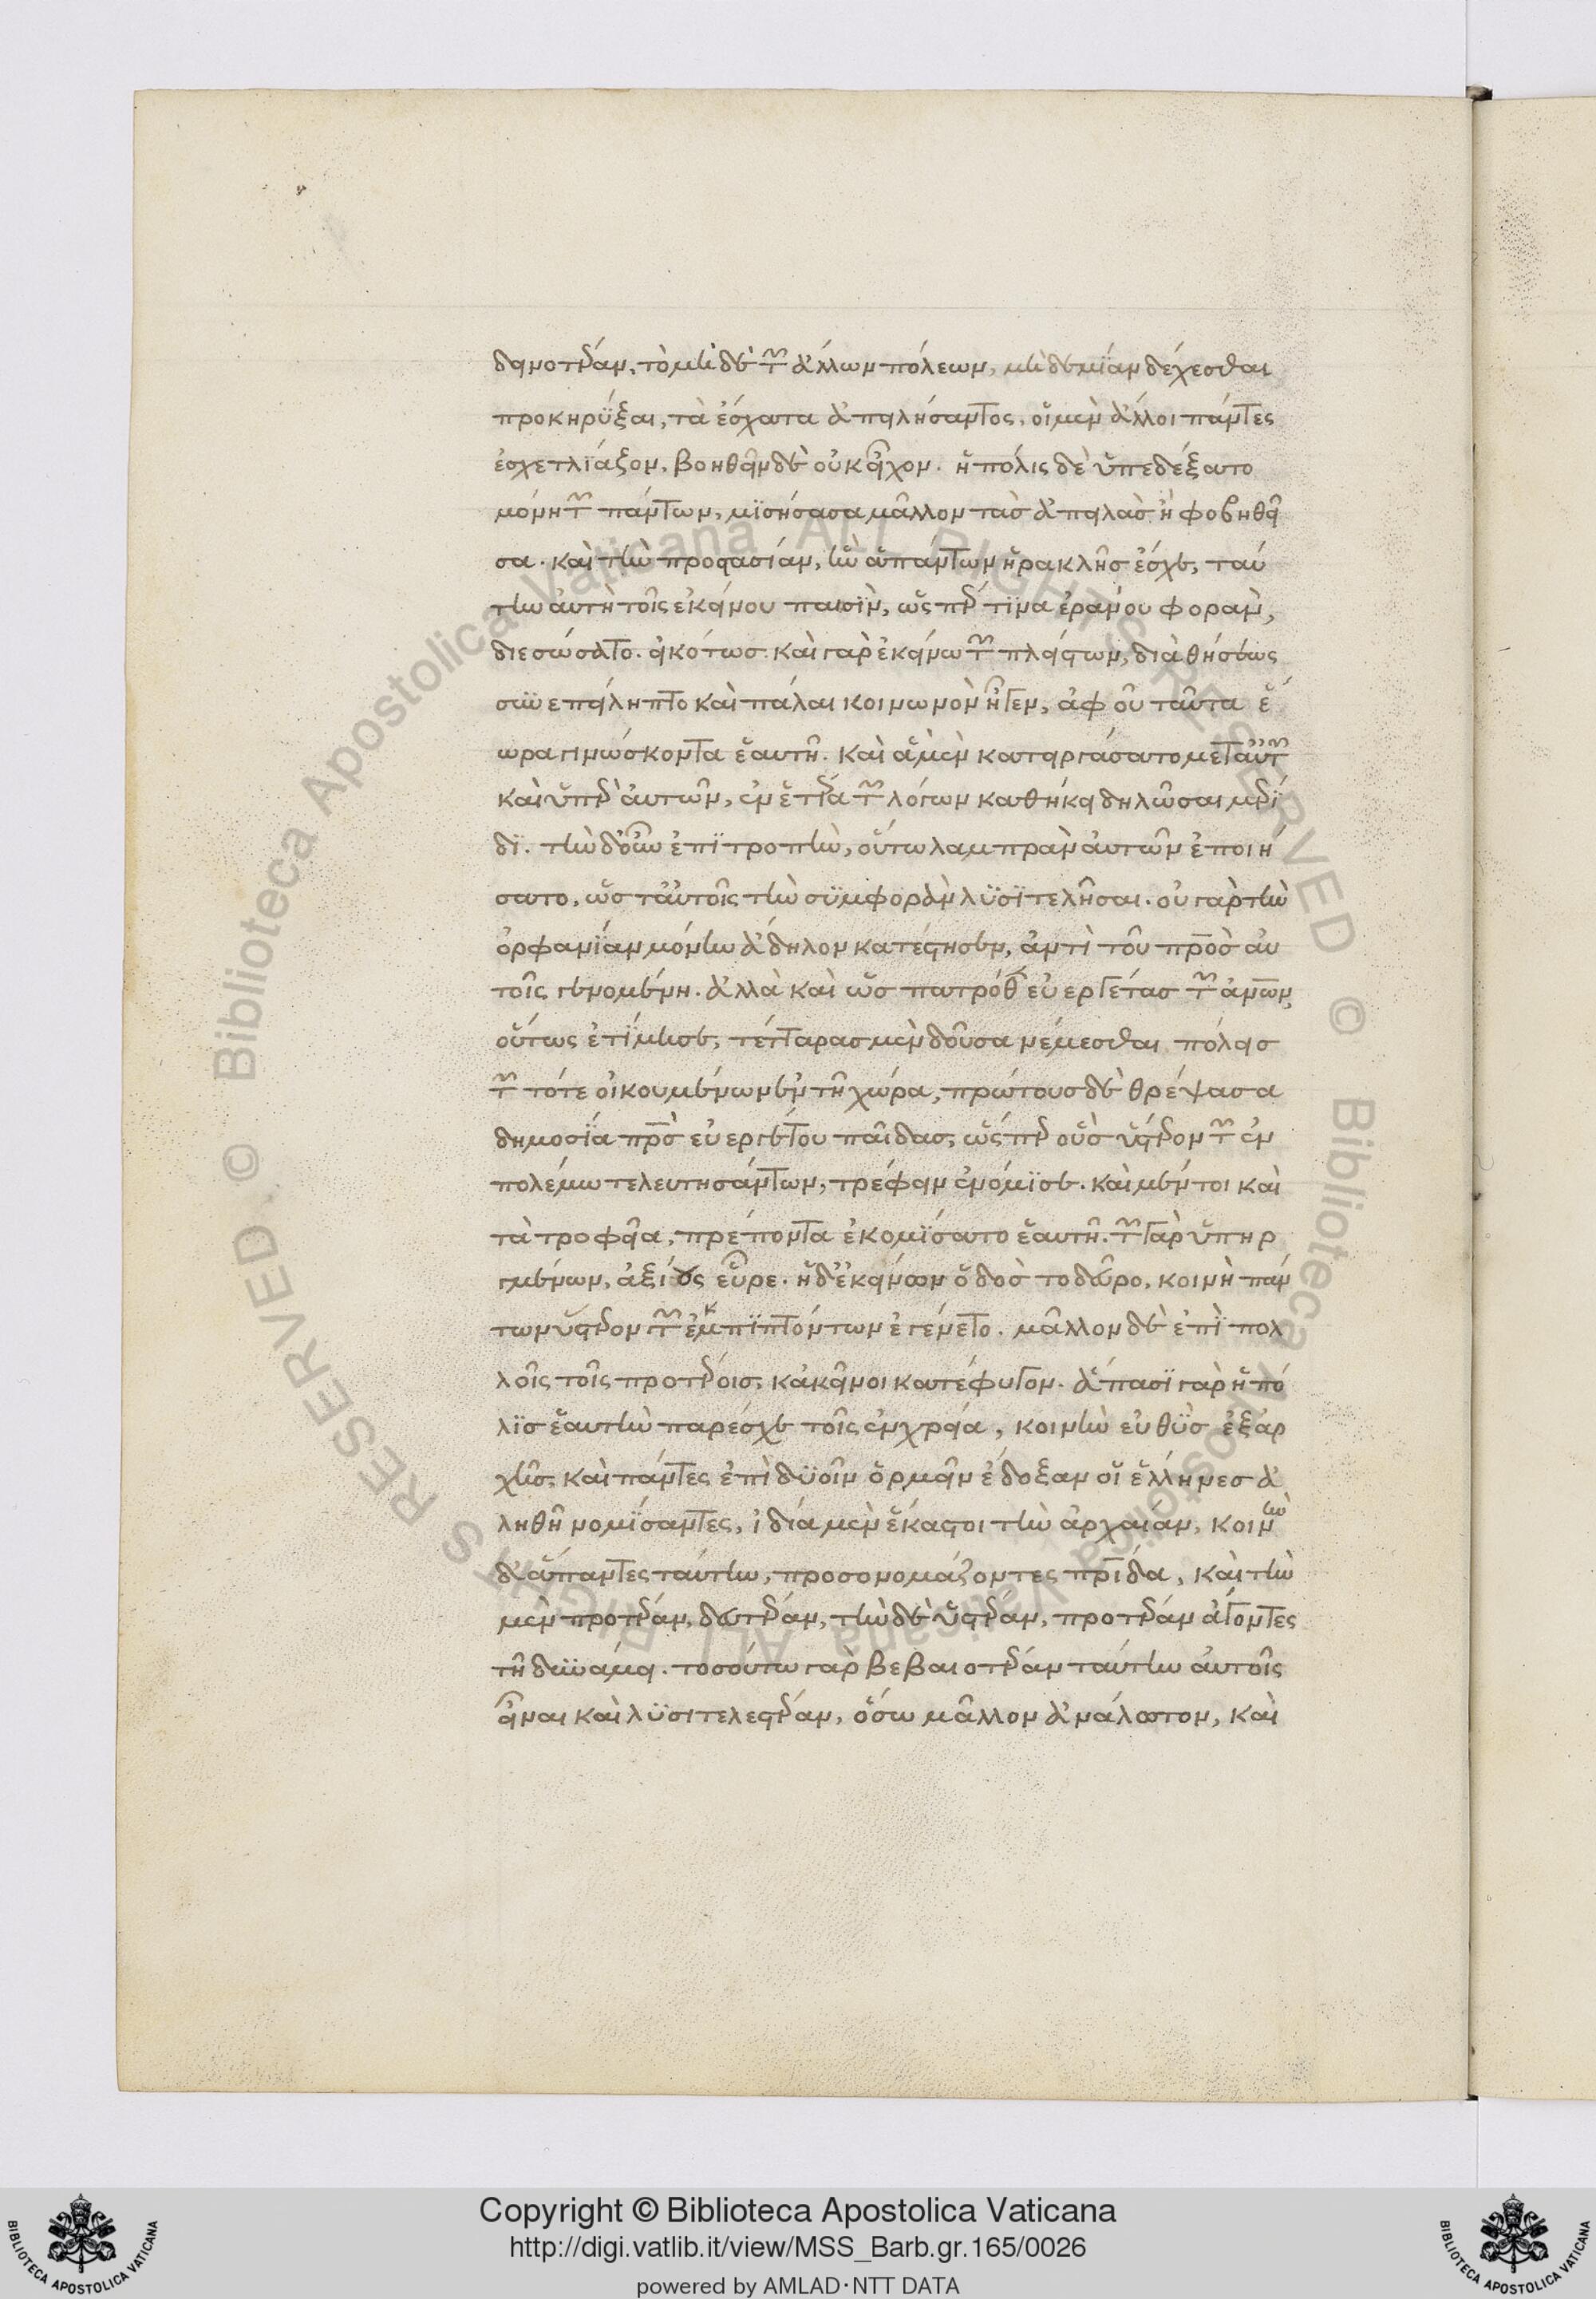 δεινοτέραν, τὸ μηδὲ τῶν ἄλλων πόλεων, μηδεμΐαν δέχεσθαι
προκηρύξαι, τὰ ἔσχατα ἀπειλήσαντος, οἱ μὲν ἄλλοι πάντες
ἐσχετλΐαζον, βοηθεῖν δὲ οὐκ εἶχον. ἡ πόλις δὲ ὑπεδέξατο
μόνη τῶν πάντων, μϊσήσασα μᾶλλον τὰς ἀπειλὰς ἢ φοβηθεῖ
σα. καὶ τὴν προφασίαν, ἣν ἁπάντων ἡρακλῆς ἔσχε, ταύ
την ἀυτὴ τοῖς εκείνου παισϊν, ὥς περ τϊνα ἐράνου φορὰν,
διεσώσατο. εἰκότως. καὶ γὰρ ἐκείνω τῶν πλείστων, διὰ θήσέως
συϋεπείληπτο καὶ πάλαι κοινωνὸν ἦγεν, ἀφ οὗ ταῦτα ἑ
ώρα γινώσκοντα ἑαυτῆ. καὶ ἃ μὲν κατειργάσατο μετ αὐτῶν
καὶ ὑπὲρ ἀυτῶν, ἐν ἑτέρα τῶν λόγων καθήκει δηλῶσαι μερΐ
δϊ. τὴν δ οὖν ἐπϊτροπὴν, οὕτω λαμπρὰν ἀυτῶν ἐποιή
σατο, ὥστ ἀυτοῖς τὴν σϋμφορὰν λϋσϊτελῆσαι. οὐ γὰρ τὴν
ὀρφανΐαν μόνην ἄδηλον κατέστησεν, ἀντὶ τοῦ πρς ἀυ
τοῖς γενομένη. ἀλλὰ καὶ ὡς πατρόθεν εὐεργέτας τῶν ἀνων,
οὕτως ἐτΐμησε, τέτταρας μὲν δοῦσα νέμεσθαι πόλεις
τῶν τότε οἰκουμένων ἐν τῆ χώρα, πρώτους δὲ θρέψασα
δημοσΐα πρς εὐεργέτου παῖδας, ὥς περ οὓς ὕστερον τῶν ἐν
πολέμω τελευτησάντων, τρέφειν ἐνόμϊσε. καὶ μέντοι καὶ
τὰ τροφεῖα, πρέποντα ἐκομΐσατο ἑαυτῆ. τῶν γὰρ ὑπηρ
γμένων, ἀξίους εὗρε. ἡ δ ἐκείνων ὁδὸς το δῶρο, κοινὴ πάν
των ὕστερον τῶν ἐκπϊπτόντων ἐγένετο. μᾶλλον δὲ ἐπῒ πολ
λοῖς τοῖς προτέροις, κἀκεῖνοι κατέφυγον. ἅπασϊ γὰρ ἡ πό
λϊς ἑαυτὴν παρέσχε τοῖς ἐν χρεία, κοινὴν εὐθϋς ἐξ ἀρ
χῆς, καὶ πάντες ἐπὶ δϋοῖν ὁρμεῖν ἔδοξαν οἱ ἕλληνες ἀ
ληθῆ νομΐσαντες, ἰδία μὲν ἕκαστοι τὴν ἀρχαιάν, κοινὴν
δ ἅπαντες ταύτην, προσονομάζοντες πρίδα, καὶ τὴν
μὲν προτέραν, δευτέραν, τὴν δὲ ὑστέραν, προτέραν ἄγοντες
τῆ δυϋάμει. τοσούτω γὰρ βεβαιοτέραν ταύτην ἀυτοῖς
εἶναι καὶ λϋσιτελεστέραν, ὅσω μᾶλλον ἀνάλωτον, καὶ
Copyright © Biblioteca Apostolica Vaticana
http://digi.vatlib.it/view/MSS_Barb.gr.165/0026
powered by AMLAD·NTT DATA